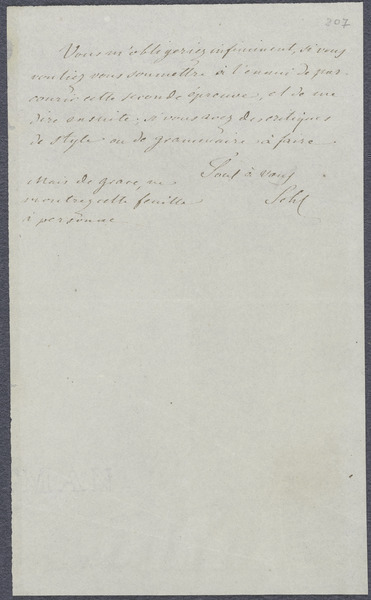 207
Vous m'obligeriez infiniment, si vous
vouliez vous soumettre à l'ennui de par-
courir cette seconde épreuve, et de me
dire ensuite, si vous avez des critiques
de style ou de grammaire à faire
Tout à vous
Schl
Mais de grace, ne
montrez cette feuille
à personne